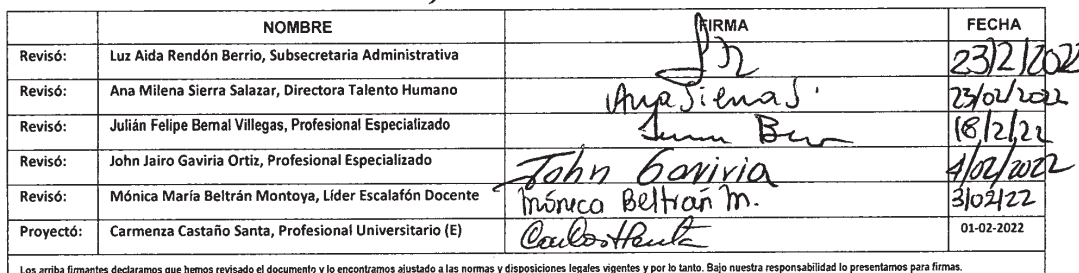 NOMBRE FIRMA FECHA
Revisó: Luz Aida Rendón Berrio, Subsecretaria Administrativa 23/2/2022
Revisó: Ana Milena Sierra Salazar, Directora Talento Humano Ana Sierra S. 23/02/2022
Revisó: Julián Felipe Bernal Villegas, Profesional Especializado 18/2/22
Revisó: John Jairo Gaviria Ortiz, Profesional Especializado John Gaviria 4/02/2022
Revisó: Mónica María Beltrán Montoya, Líder Escalafón Docente Mónica Beltrán M. 3/02/22
Proyectó: Carmenza Castaño Santa, Profesional Universitario (E) 01-02-2022
Los arriba firmantes declaramos que hemos revisado el documento y lo encontramos ajustado a las normas y disposiciones legales vigentes y por lo tanto. Bajo nuestra responsabilidad lo presentamos para firmas.